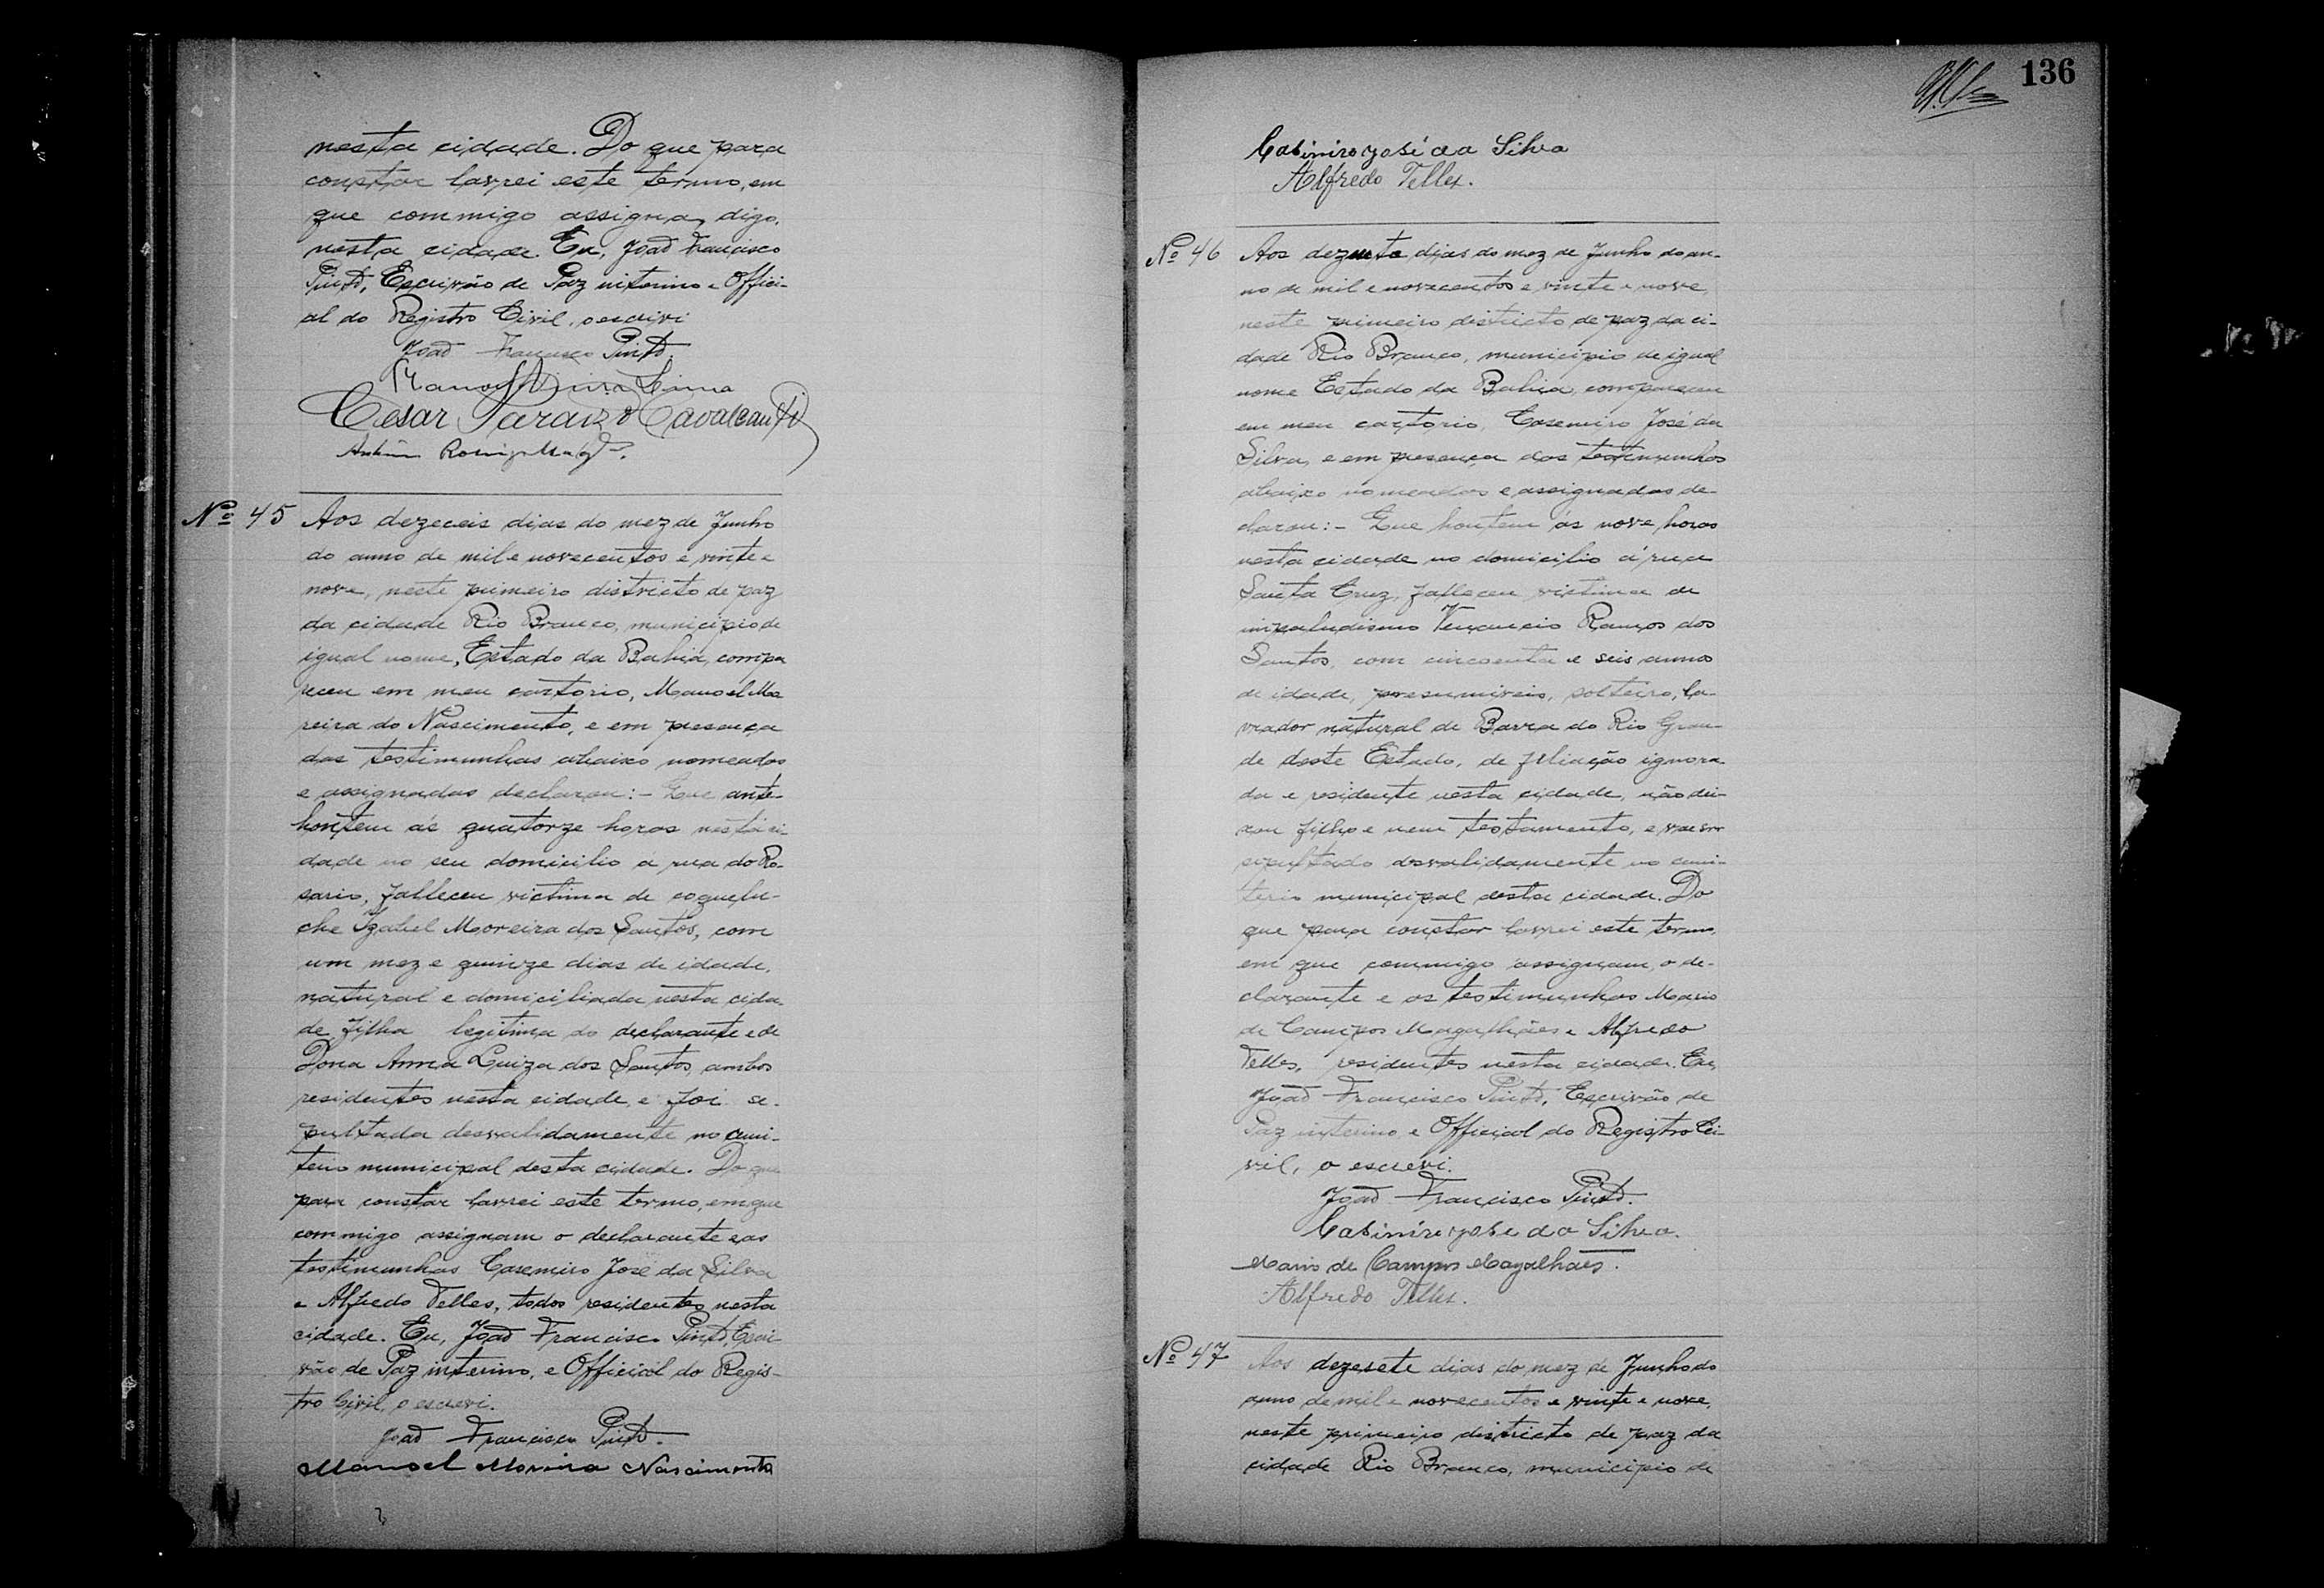 nesta cidade. Do que para
constar lavrei este termo, em
que commigo assigna, digo,
nesta cidade. Eu, João Francisco
Pinto, Escrivão de Paz interino e Offici-
al do Registro Civil, o escrivi
João Francisco Pinto.
Manoel Lima
Cesar Paraizo Cavalcanti
Nº 45 Aos dezeceis dias do mez de Junho
do anno de mil e novecentos e vinte e
nove, neste primeiro districto de paz
da cidade Rio Branco, municipio de
igual nome, Estado da Bahia, compa
receu em meu cartorio, Manoel Mo
reira do Nascimento, e em presença
das testimunhas abaixo nomeadas
e assignadas declarou:- Que ante-
hontem ás quatorze horas nesta ci-
dade no seu domicilio á rua do Ro-
sario, falleceu victima de coquelu-
che Izabel Moreira dos Santos, com
um mez e quinze dias de idade,
natural e domiciliada nesta cida
de filha legitima do declarante e de
Dona Anna Luiza dos Santos, ambos
residentes nesta cidade, e foi se-
pultada desvalidamente no cemi-
terio municipal desta cidade. Do que
para constar lavrei este termo, em que
commigo assignam o declarante e as
testimunhas Casemiro José da Silva
e Alfredo Telles, todos residentes nesta
cidade. Eu, João Francisco Pinto, Escri-
vão de Paz interino, e Official do Regis-
tro Civil, o escrevi.
João Francisco Pinto.
Manoel Moreira Nascimento
136
Casimiro José da Silva
Alfredo Telles.
Nº 46 Aos dezesete dias do mez de Junho do an-
no de mil e novecentos e vinte e nove,
neste primeiro districto de paz da ci-
dade Rio Branco, municipio de igual
nome Estado da Bahia, compareceu
em meu cartorio, Casemiro José da
Silva, e em presença das testimunhas
abaixo nomeadas e assignadas de-
clarou:- Que hontem ás nove horas
nesta cidade no domicilio á rua
Santa Cruz, falleceu victima de
impaludismo Venancio Ramos dos
Santos, com cincoenta e seis annos
de idade, presumiveis, solteiro, la-
vrador natural de Barra do Rio Gran-
de deste Estado, de filiação ignora
da e residente nesta cidade, não dei-
xou filho e nem testamento, e vae ser
sepultado desvalidamente no cemi-
terio municipal desta cidade. Do
que para constar lavrei este termo,
em que commigo assignam, o de-
clarante e as testimunhas Mario
de Campos Magalhães e Alfredo
Telles, residentes nesta cidade. Eu,
João Francisco Pinto, Escrivão de
Paz interino e Official do Registro Ci-
vil, o escrevi.
João Francisco Pinto.
Casimiro José da Silva.
Mario de Campos Magalhães.
Alfredo Telles.
Nº 47 Aos dezesete dias do mez de Junho do
anno de mil e novecentos e vinte e nove,
neste primeiro districto de paz da
cidade Rio Branco, municipio de